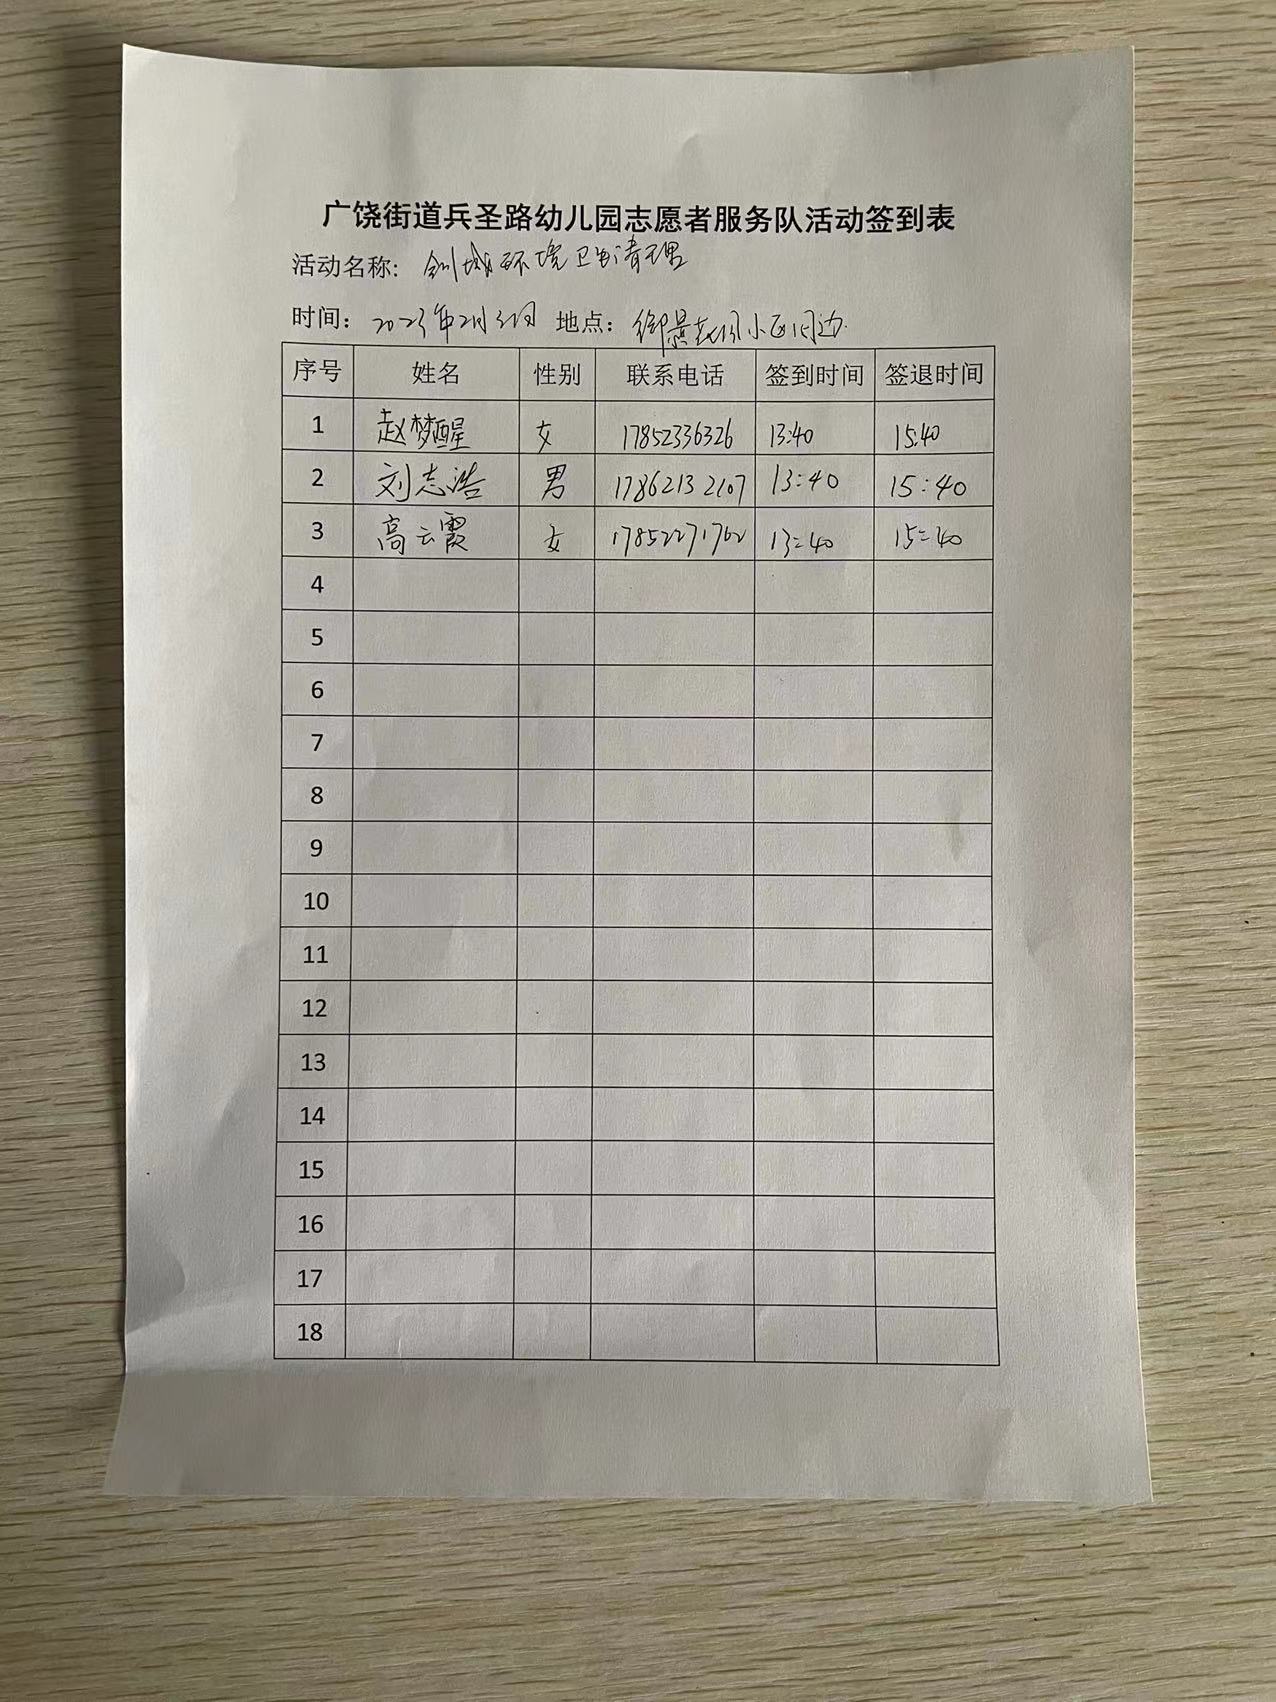 广饶街道兵圣路幼儿园志愿者服务队活动签到表
活动名称: 创城环境卫生清理
时间: 2023年2月3日 地点: 御景小区周边
序号 姓名 性别 联系电话 签到时间 签退时间
1 赵梦醒 女 17852336326 13:40 15:40
2 刘志浩 男 17862132107 13:40 15:40
3 高云霞 女 17852271762 13:40 15:40
4
5
6
7
8
9
10
11
12
13
14
15
16
17
18